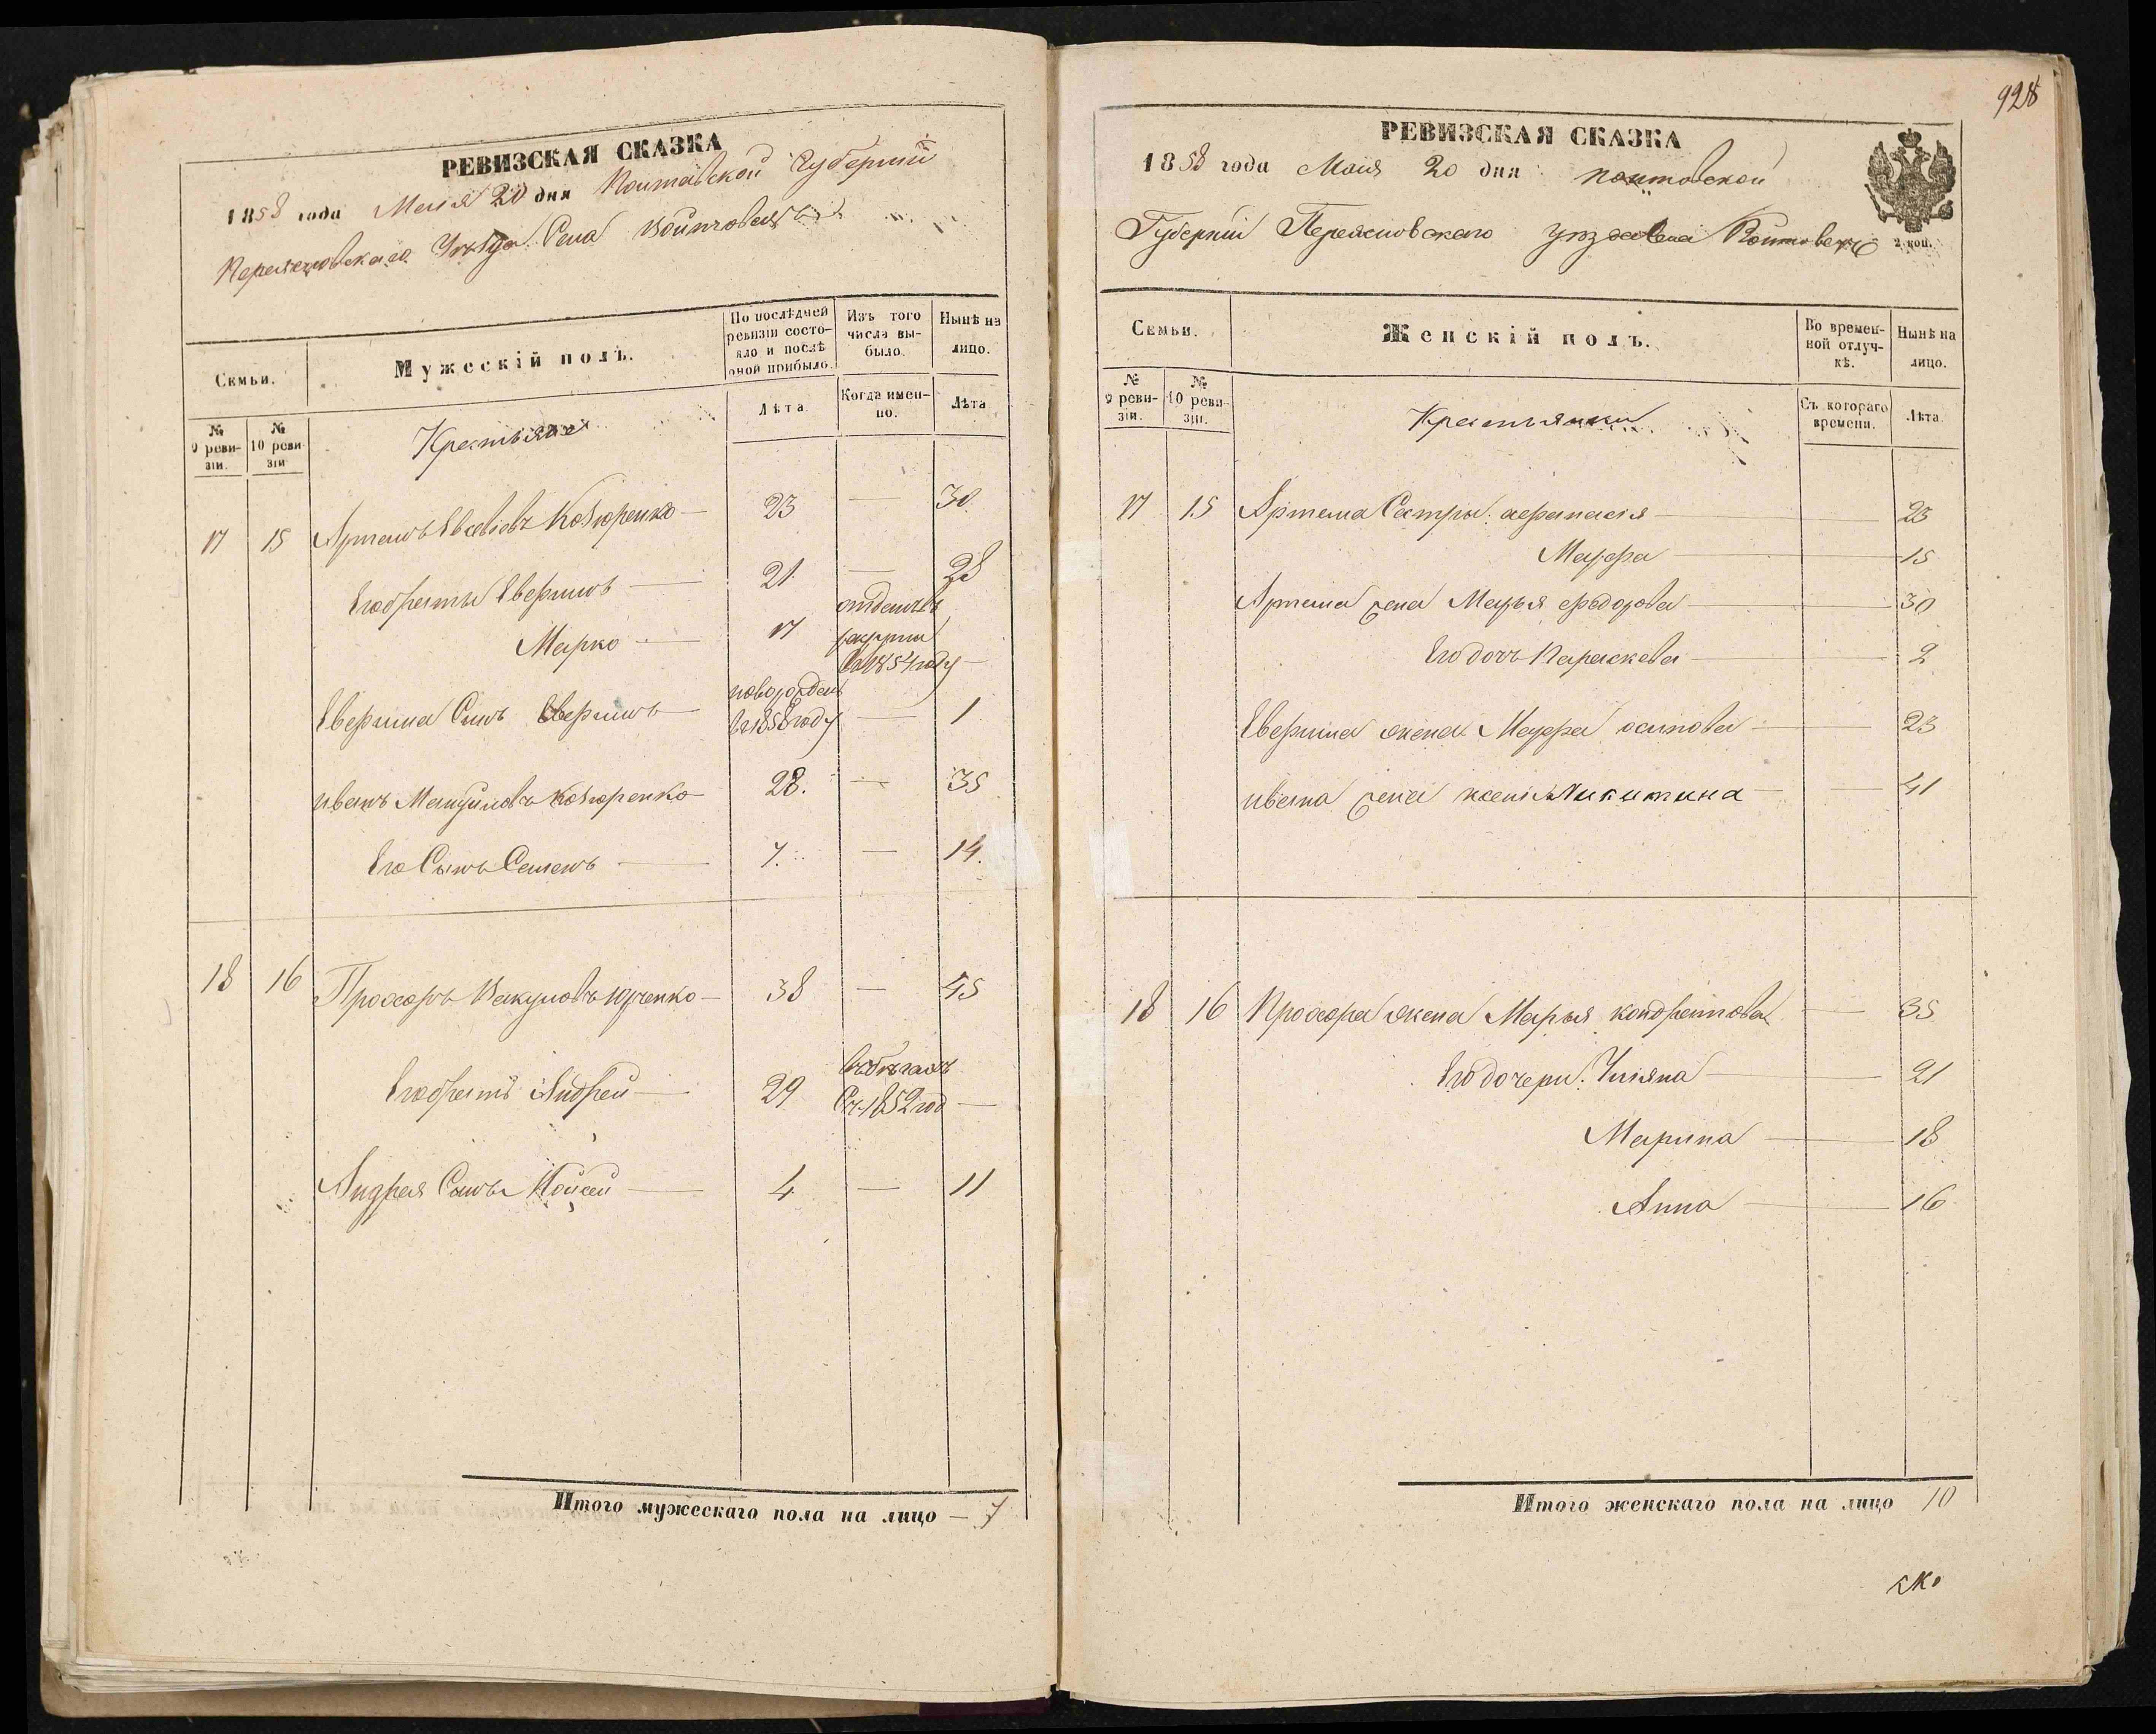 РЕВИЗСКАЯ СКАЗКА
1858 года Маія 20 дня Полтавской Губерніи
Переяславскаго Уѣзда Села Войтовецъ
Семьи.
Мужескій полъ.
По послѣдней ревизіи состояло и послѣ оной прибыло.
Изъ того числа выбыло.
Нынѣ на лицо.
№ 9 ревизіи.
№ 10 ревизіи
Крестьяне
Лѣта
Когда именно.
Лѣта
17 15 Артемъ Евсевіевъ 23 — 30
Его братья Аверьянъ — 21 — 28
Марко — 17 отданъ въ рекруты въ 1854 году —
Сынъ — новорожден въ 1858 году — 1
Иванъ 28. — 35
Его Сынъ Семенъ — 7. — 14.
18 16 Прохоръ Вакуловъ Юрченко — 38 — 45
Его братъ Андрей — 29 въ бѣгахъ Съ 1852 год —
Андрея Сынъ Мойсей — 4 — 11
Итого мужескаго пола на лицо — 7
928
РЕВИЗСКАЯ СКАЗКА
1858 года Маія 20 дня Полтавской
Губерніи Переяславскаго уѣзда села Войтовецъ
2 коп.
Семьи.
Женскій полъ.
Во временной отлучкѣ.
Нынѣ на лицо.
№ 9 ревизіи.
№ 10 ревизіи.
Крестьянки
Съ котораго времени.
Лѣта
17 15 Артема Сестры: — 23
Марфа — 15
Артема жена Марья Федорова — 30
Его дочь Параскева — 2
жена Марфа осипова — 23
ивана жена ксенія Никитина — 41
18 16 Прохора жена Марья кондратова — 35
Его дочери: Уліяна — 21
Марина — 18
Анна — 16
Итого женскаго пола на лицо 10